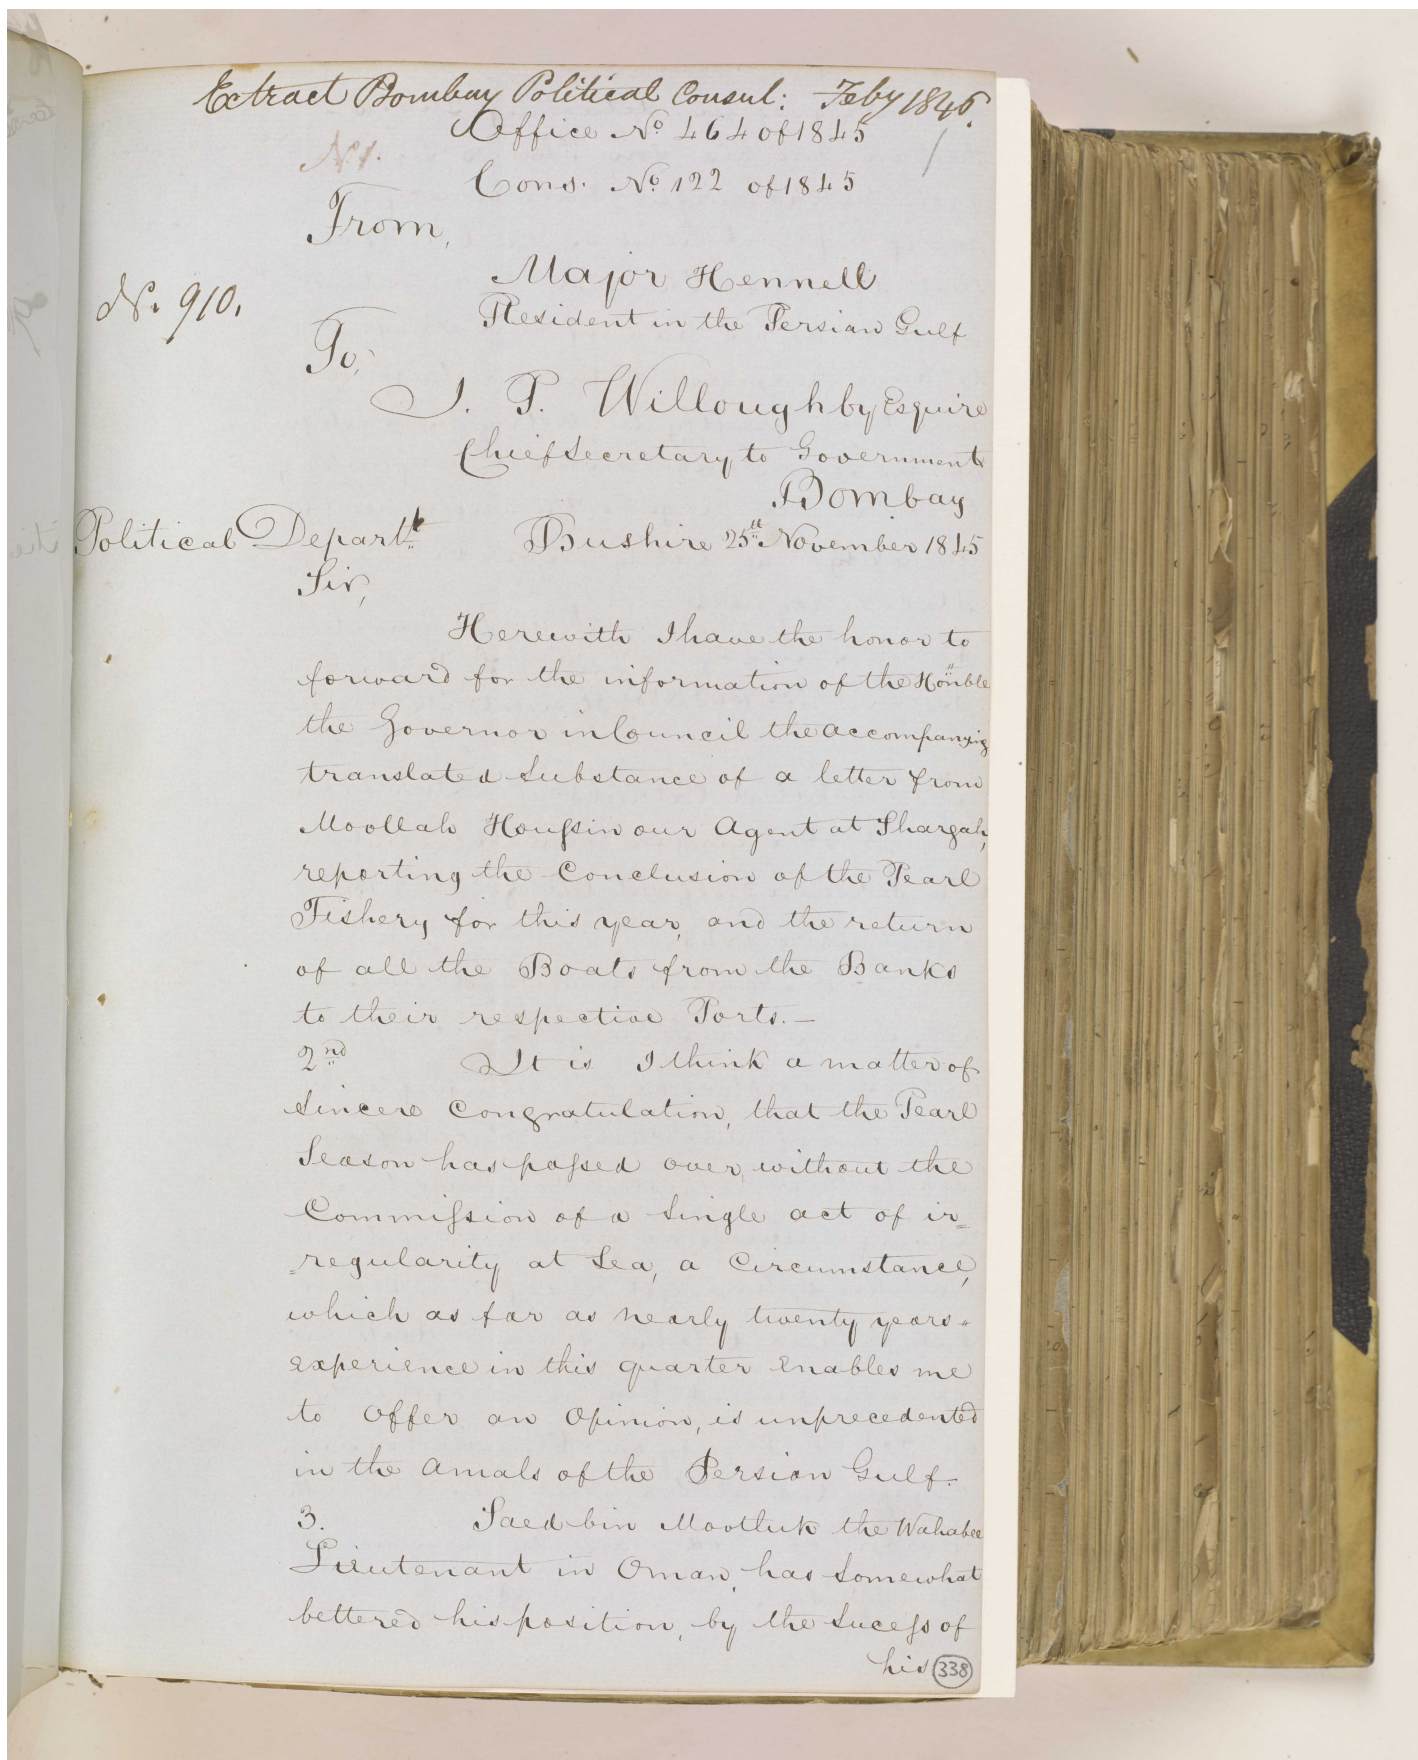 Extract Bombay Political Consul: Feby 1846.
Office No. 464 of 1845
No 1.
Cons. No. 122 of 1845
From,
Major Hennell
Resident in the Persian Gulf
No. 910.
To,
J. P. Willoughby Esquire
Chief Secretary to Government
Bombay
Political Depart.t Bushire 25th November 1845
Sir,
Herewith I have the honor to
forward for the information of the Honble
the Governor in Council the accompanying
translated substance of a letter from
Moollah Houſsin our Agent at Shargah,
reporting the Conclusion of the Pearl
Fishery for this year, and the return
of all the Boats from the Banks
to their respective Ports. —
2nd It is I think a matter of
sincere Congratulation, that the Pearl
Season has paſsed over, without the
Commiſsion of a single act of ir=
=regularity at Sea, a Circumstance,
which as far as nearly twenty years"
experience in this quarter enables me
to offer an opinion, is unprecedented
in the annals of the Persian Gulf.
3. Saed bin Mootluk the Wahabee
Lieutenant in Oman, has somewhat
bettered his position, by the Suceſs of
his
338